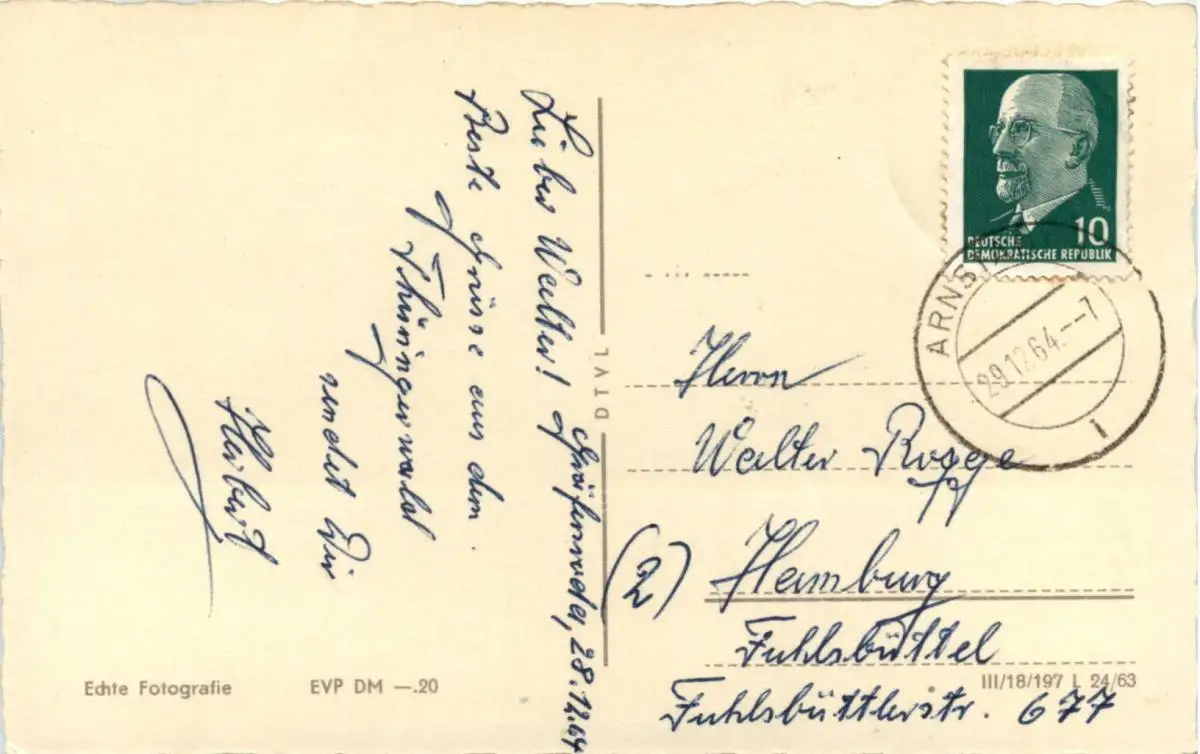 Gräfenroda, 28.12.64
Lieber Walter!
Beste Grüsse aus dem
Thüringerwald
sendet Dir
Herbert
DTVL
10
DEUTSCHE
DEMOKRATISCHE REPUBLIK
29.12.64.--7
i
Herrn
Walter Rogge
(2) Hamburg
Fuhlsbüttel
Fuhlsbüttlerstr. 677
Echte Fotografie
EVP DM —.20
III/18/197 L 24/63